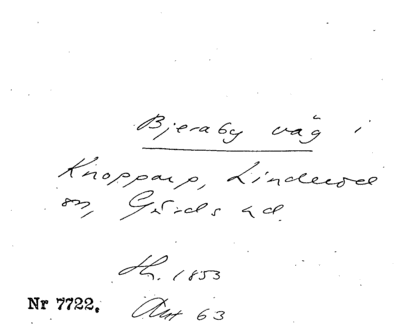 Bjeraby väg i
Knopparp, Linderöd
sn, Gärds hd.
Th. 1853
Nr 7722. Akt 63